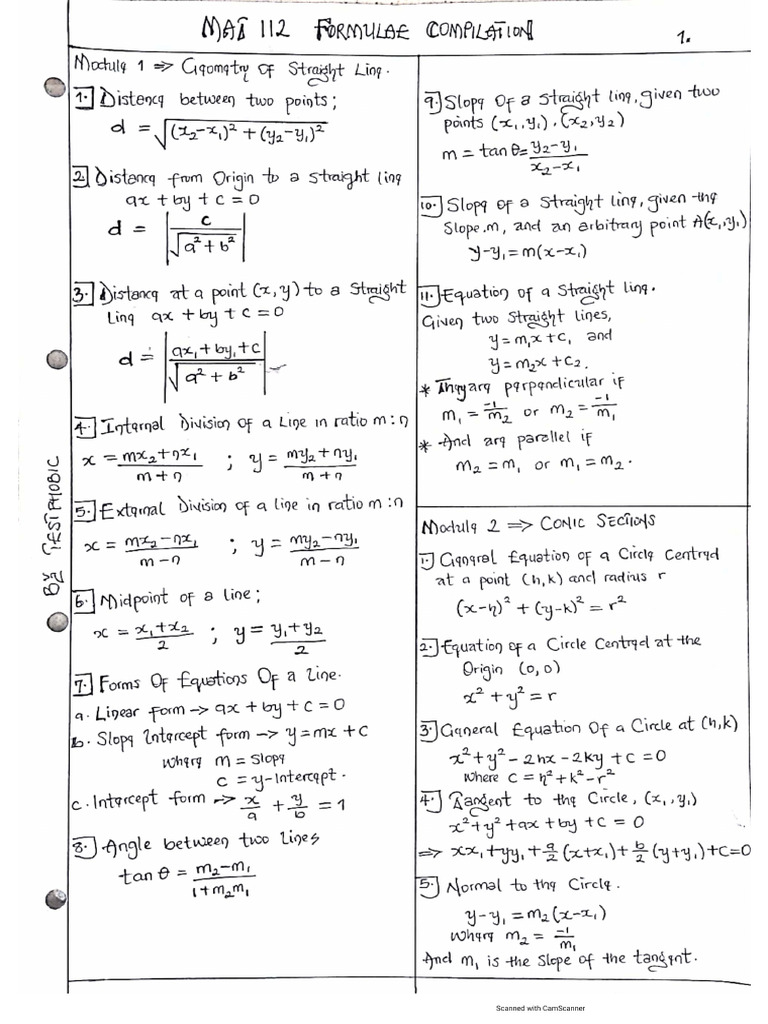 MAT 112 FORMULAE COMPILATION
1.
Module 1 ⇒ Geometry of Straight Line.
1. Distance between two points;
d = √((x₂-x₁)² + (y₂-y₁)²)
2. Distance from Origin to a straight line
ax + by + c = 0
d = |c / √(a² + b²)|
3. Distance at a point (x, y) to a Straight
Line ax + by + c = 0
d = |(ax₁ + by₁ + c) / √(a² + b²)|
4. Internal Division of a Line in ratio m:n
x = (mx₂ + nx₁)/(m + n) ; y = (my₂ + ny₁)/(m + n)
5. External Division of a line in ratio m:n
x = (mx₂ - nx₁)/(m - n) ; y = (my₂ - ny₁)/(m - n)
6. Midpoint of a line;
x = (x₁ + x₂)/2 ; y = (y₁ + y₂)/2
7. Forms Of Equations Of a Line.
a. Linear form → ax + by + c = 0
b. Slope Intercept form → y = mx + c
where m = slope
c = y-intercept.
c. Intercept form → x/a + y/b = 1
8. Angle between two lines
tan θ = (m₂ - m₁)/(1 + m₂m₁)
BY TESTPHOBIC
9. Slope Of a straight line, given two
points (x₁, y₁), (x₂, y₂)
m = tan θ = (y₂ - y₁)/(x₂ - x₁)
10. Slope of a Straight line, given the
Slope.m, and an arbitrary point A(x₁, y₁)
y - y₁ = m(x - x₁)
11. Equation of a Straight line.
Given two straight lines,
y = m₁x + c₁ and
y = m₂x + c₂.
* They are perpendicular if
m₁ = -1/m₂ or m₂ = -1/m₁
* And are parallel if
m₂ = m₁ or m₁ = m₂.
Module 2 ⇒ CONIC SECTIONS
1. General Equation of a Circle Centred
at a point (h, k) and radius r
(x-h)² + (y-k)² = r²
2. Equation of a Circle Centred at the
Origin (0, 0)
x² + y² = r
3. General Equation Of a Circle at (h, k)
x² + y² - 2hx - 2ky + c = 0
where c = h² + k² - r²
4. Tangent to the Circle, (x₁, y₁)
x² + y² + ax + by + c = 0
⇒ xx₁ + yy₁ + a/2 (x + x₁) + b/2 (y + y₁) + c = 0
5. Normal to the Circle.
y - y₁ = m₂(x - x₁)
where m₂ = -1/m₁
And m₁ is the slope of the tangent.
Scanned with CamScanner